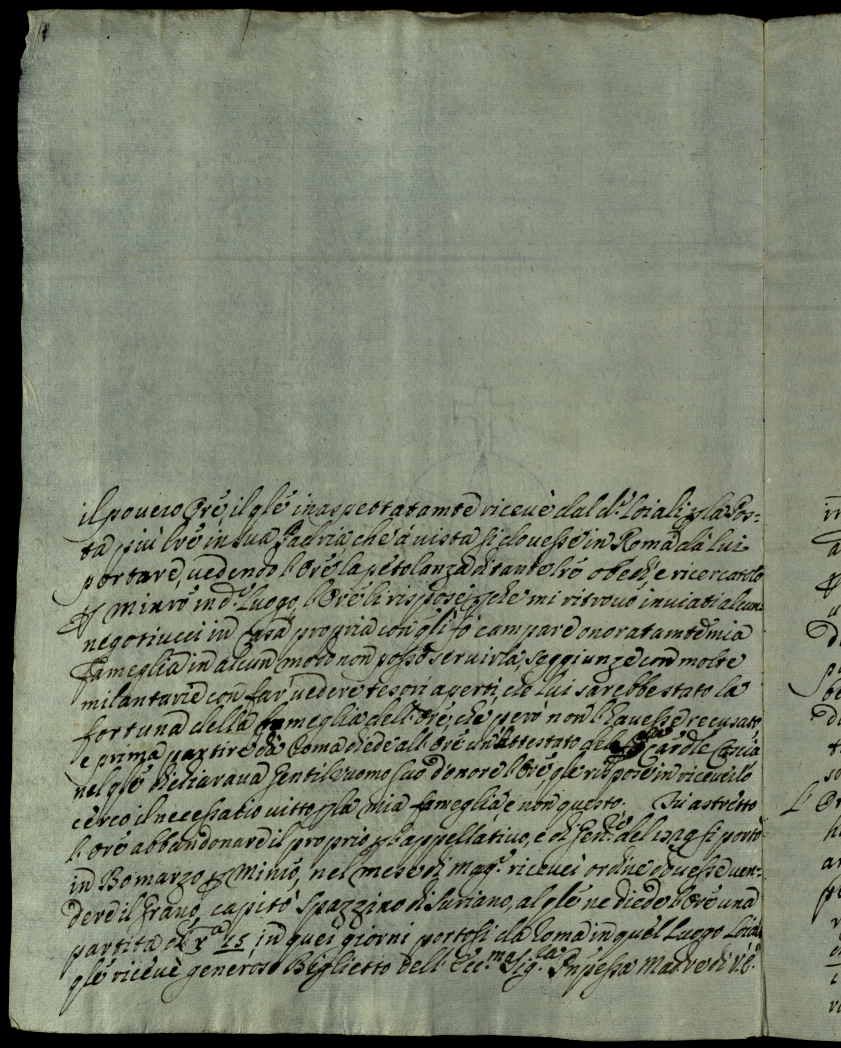 il povero Orē il qlē inaspettatamtē ricevè dal dº Loiali p la Pos=
ta più lrē in sua Padria che à vista si dovesse in Roma da lui
portare, vedendo l'Orē la petolanza di tante lrē obedì, e ricercatolo
p Minrō in dº Luogo, l'Orē li rispose, che mi ritrovo inviati alcuni
negotiucci in Casa propria con gli fò campare onoratamtē mia
fameglia in alcun modo non posso servirla, seggiunze con molte
milantarie con far vedere tesori aperti, che lui sarebbe stato la
fortuna della fameglia dell'Orē, che però non l'havesse recusato,
e prima partire da Roma diede all'Orē un'Attestato del Cardlē
nel qlē dichiarava Gentilhuomo suo d'onore l'Orē, qlē rispose in riceverlo
cerco il necessatio vitto p la mia fameglia e non questo. Fù astretto
l'Orē abbandonare il proprio p l'appellativo, e di Genrº del 1729 si portò
in Bomarzo p Minrō, nel mese di Magº ricevei ordine dovesse ven=
dere il Grano, capitò Spazzino di Suriano, al qlē ne diede l'Orē una
partita di 15 in quei giorni portosi da Roma in quel Luogo Loiali
qlē ricevè generoso Biglietto dell'Eccma Sigla Pnpessa Madre di V.E.